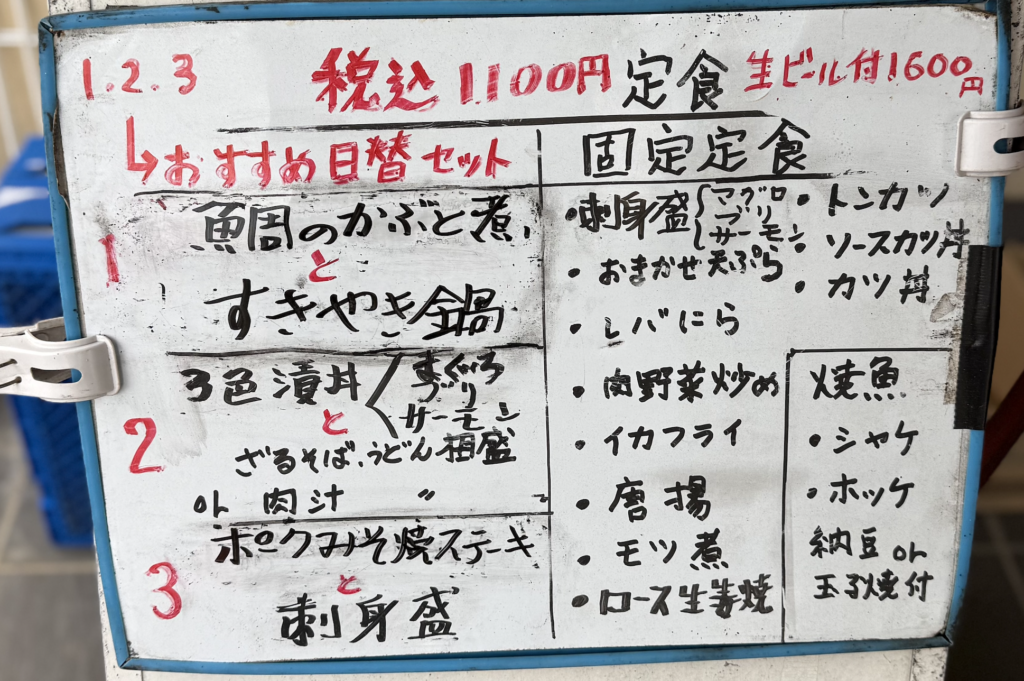 1.2.3 税込1.100円 定食 生ビール付1600円
↳おすすめ日替セット
1 魚周のかぶと煮
と
すきやき鍋
2 3色漬丼 まぐろ
ぶり
サーモン
と
ざるそば、うどん 相盛
or 肉汁 〃
3 ポークみそ焼ステーキ
と
刺身盛
固定定食
・刺身盛 マグロ
ブリ
サーモン
・おまかせ天ぷら
・レバにら
・肉野菜炒め
・イカフライ
・唐揚
・モツ煮
・ロース生姜焼
・トンカツ
・ソースカツ丼
・カツ丼
焼魚
・シャケ
・ホッケ
納豆or
玉子焼付